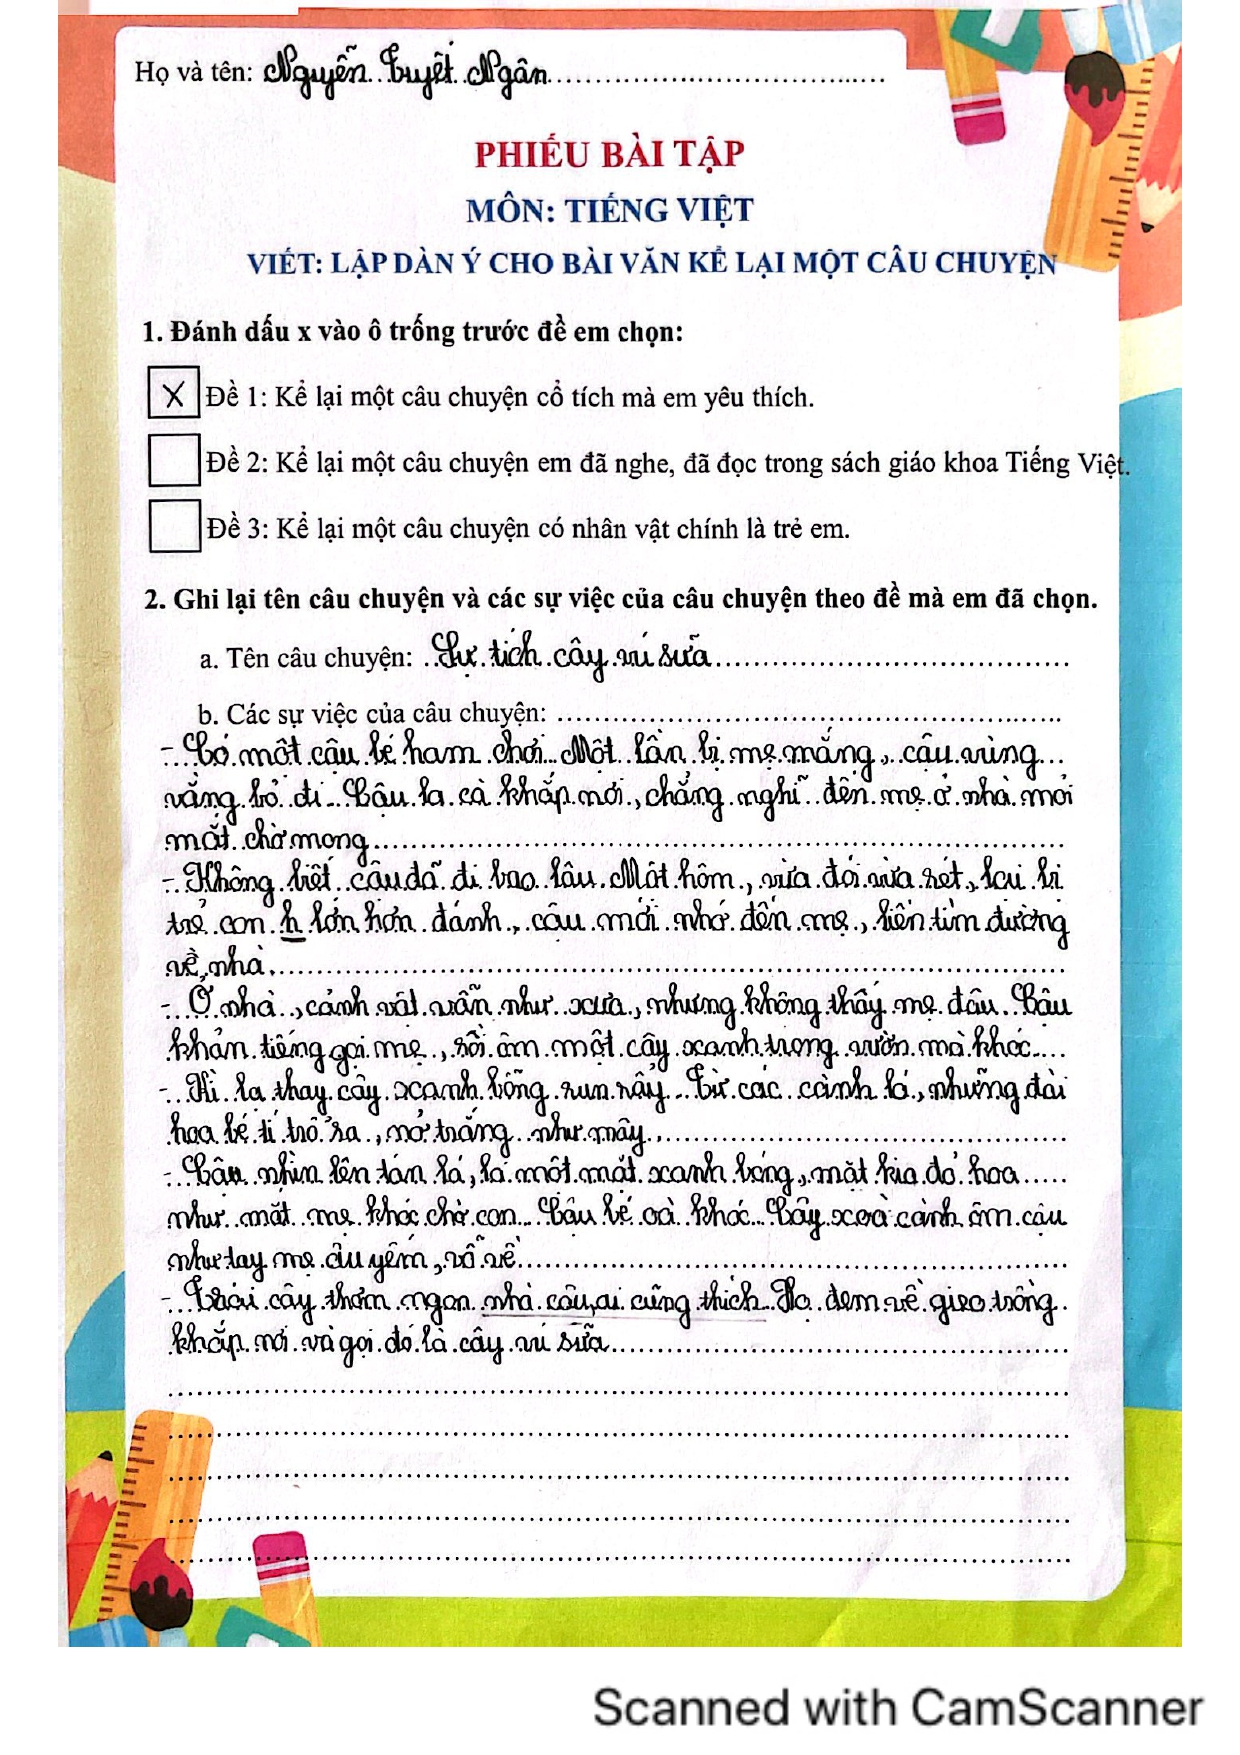 Họ và tên: Nguyễn Tuyết Ngân
PHIẾU BÀI TẬP
MÔN: TIẾNG VIỆT
VIẾT: LẬP DÀN Ý CHO BÀI VĂN KỂ LẠI MỘT CÂU CHUYỆN
1. Đánh dấu x vào ô trống trước đề em chọn:
X Đề 1: Kể lại một câu chuyện cổ tích mà em yêu thích.
Đề 2: Kể lại một câu chuyện em đã nghe, đã đọc trong sách giáo khoa Tiếng Việt.
Đề 3: Kể lại một câu chuyện có nhân vật chính là trẻ em.
2. Ghi lại tên câu chuyện và các sự việc của câu chuyện theo đề mà em đã chọn.
a. Tên câu chuyện: Sự tích cây vú sữa
b. Các sự việc của câu chuyện:
- Có một cậu bé ham chơi. Một lần bị mẹ mắng, cậu vùng
vằng bỏ đi. Cậu la cà khắp nơi, chẳng nghĩ đến mẹ ở nhà mỏi
mắt chờ mong
- Không biết cậu đã đi bao lâu. Một hôm, vừa đói vừa rét, lại bị
trẻ con h lớn hơn đánh, cậu mới nhớ đến mẹ, liền tìm đường
về nhà.
- Ở nhà, cảnh vật vẫn như xưa, nhưng không thấy mẹ đâu. Cậu
khản tiếng gọi mẹ, rồi ôm một cây xanh trong vườn mà khóc
- Kì lạ thay cây xanh bỗng run rẩy. Từ các cành lá, những đài
hoa bé tí trổ ra, nở trắng như mây.
- Cậu nhìn lên tán lá, lá một mặt xanh bóng, mặt kia đỏ hoe
như mắt mẹ khóc chờ con. Cậu bé oà khóc. Cây xoà cành ôm cậu
như tay mẹ âu yếm, vỗ về
- Trái cây thơm ngon nhà cậu, ai cũng thích. Họ đem về gieo trồng
khắp nơi và gọi đó là cây vú sữa
Scanned with CamScanner